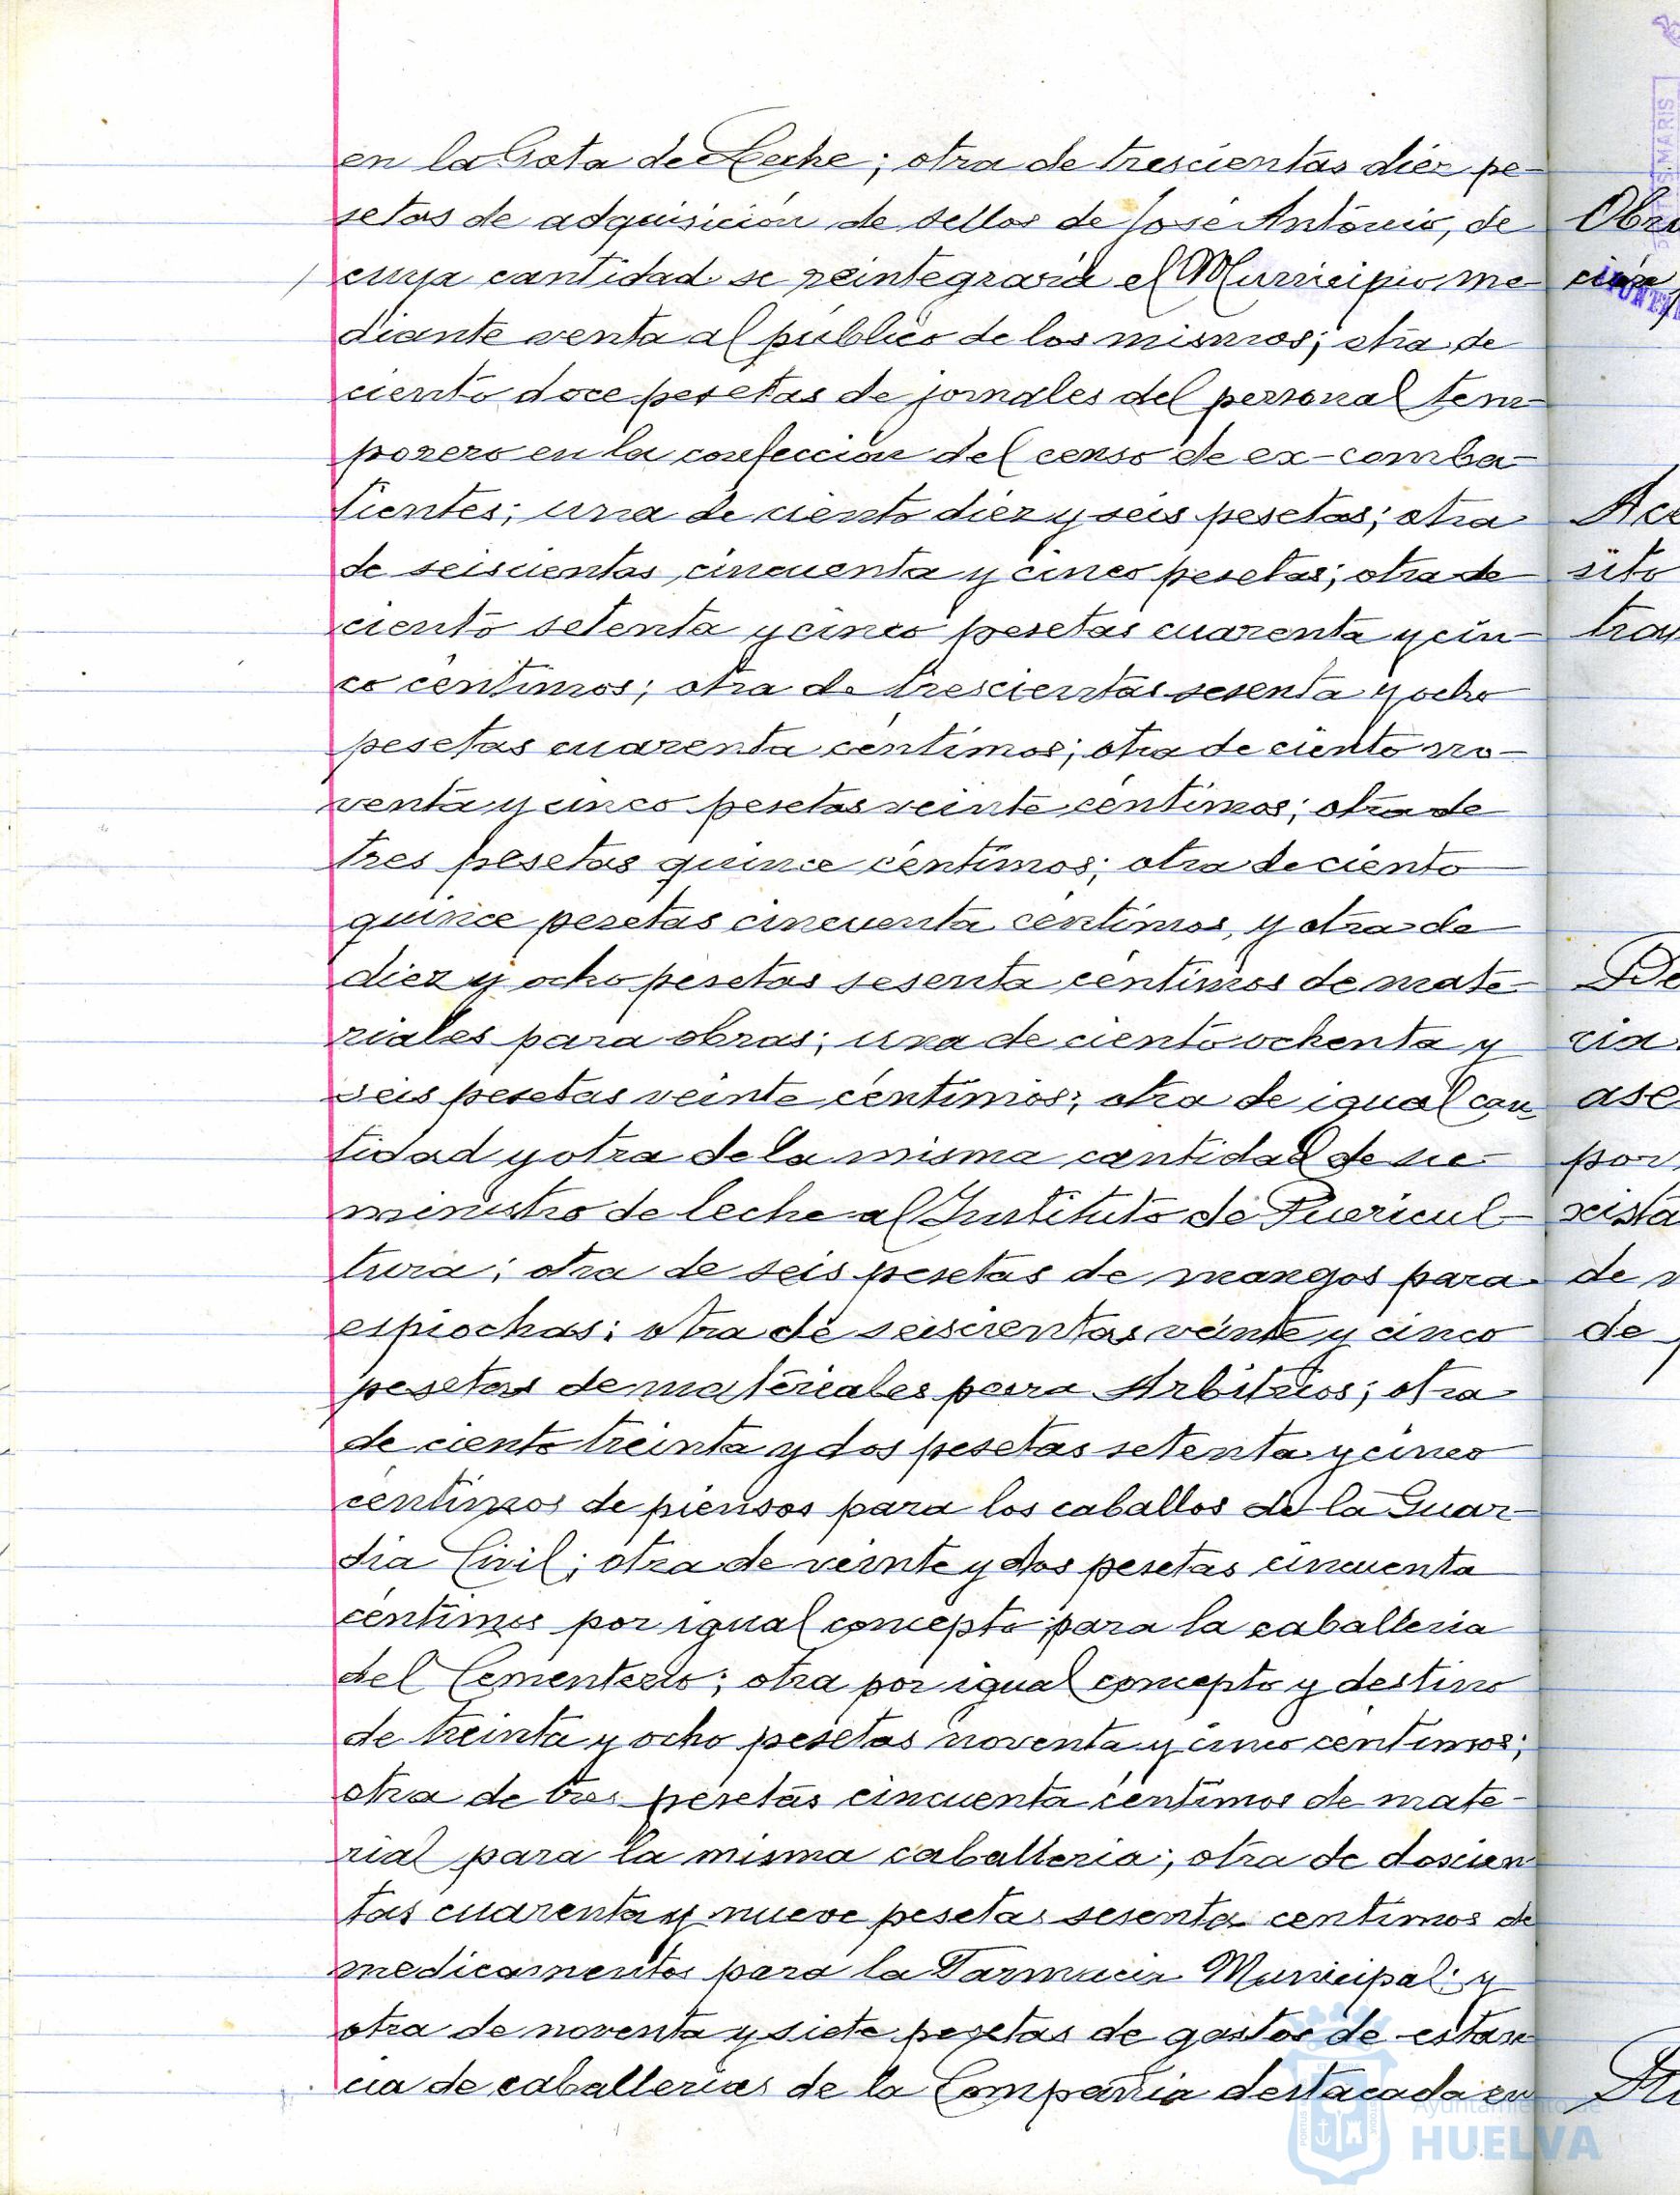 en la Gota de Leche; otra de trescientas diéz pe-
setas de adquisición de sellos de José António, de
cuya cantidad se reintegrará el Municipio me
diante venta al público de los mismos; otra de
ciento doce pesetas de jornales del personal tem-
porero en la confección del censo de ex-comba-
tientes; una de ciento diéz y seis pesetas; otra
de seiscientas cincuenta y cinco pesetas; otra de
ciento setenta y cinco pesetas cuarenta y cin-
co céntimos; otra de trescientas sesenta y ocho
pesetas cuarenta céntimos; otra de ciento no-
venta y cinco pesetas veinte céntimos; otra de
tres pesetas quince céntimos; otra de ciento
quince pesetas cincuenta céntimos, y otra de
diez y ocho pesetas sesenta céntimos de mate-
riales para obras; una de ciento ochenta y
seis pesetas veinte céntimos; otra de igual can
tidad y otra de la misma cantidad de su-
ministro de leche al Instituto de Puericul-
tura; otra de seis pesetas de mangos para
espiochas; otra de seiscientas veinte y cinco
pesetas de materiales para Arbitrios; otra
de ciento treinta y dos pesetas setenta y cinco
céntimos de piensos para los caballos de la Guar-
dia Civil; otra de veinte y dos pesetas cincuenta
céntimos por igual concepto para la caballeria
del Cementerio; otra por igual concepto y destino
de treinta y ocho pesetas noventa y cinco centimos;
otra de tres pesetas cincuenta céntimos de mate-
rial para la misma caballeria; otra de doscien
tas cuarenta y nueve pesetas sesenta centimos de
medicamentos para la Farmacia Municipal; y
otra de noventa y siete pesetas de gastos de estan
cia de caballerias de la Compañia destacada en
Ayuntamiento de
HUELVA
Obra
Ace
sito
tras
De
cia
ase
por
xista
de
de
S. MARIS